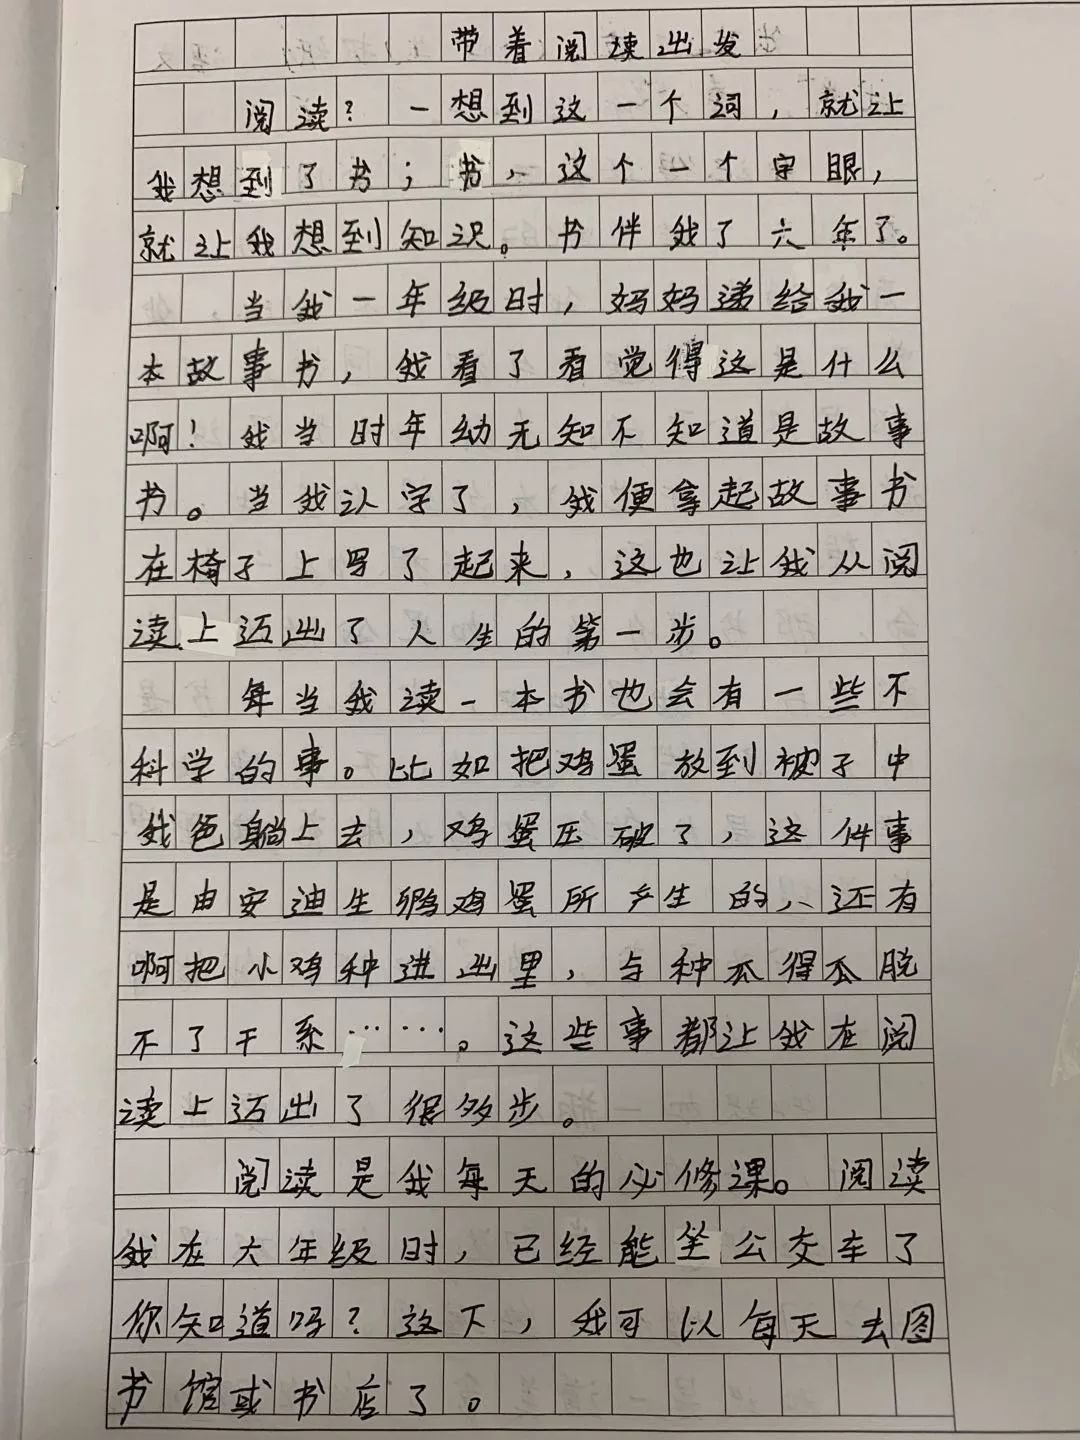 带着阅读出发
阅读？一想到这一个词，就让
我想到了书；书，这个一个字眼，
就让我想到知识。书伴我了六年了。
当我一年级时，妈妈递给我一
本故事书，我看了看觉得这是什么
啊！我当时年幼无知不知道是故事
书。当我认字了，我便拿起故事书
在椅子上写了起来，这也让我从阅
读上迈出了人生的第一步。
每当我读一本书也会有一些不
科学的事。比如把鸡蛋放到被子中
我躺上去，鸡蛋压破了，这件事
是由安迪生孵鸡蛋所产生的，还有
啊把小鸡种进出里，与种瓜得瓜脱
不了干系……。这些事都让我在阅
读上迈出了很多步。
阅读是我每天的必修课。阅读
我在六年级时，已经能坐公交车了
你知道吗？这下，我可以每天去图
书馆或书店了。